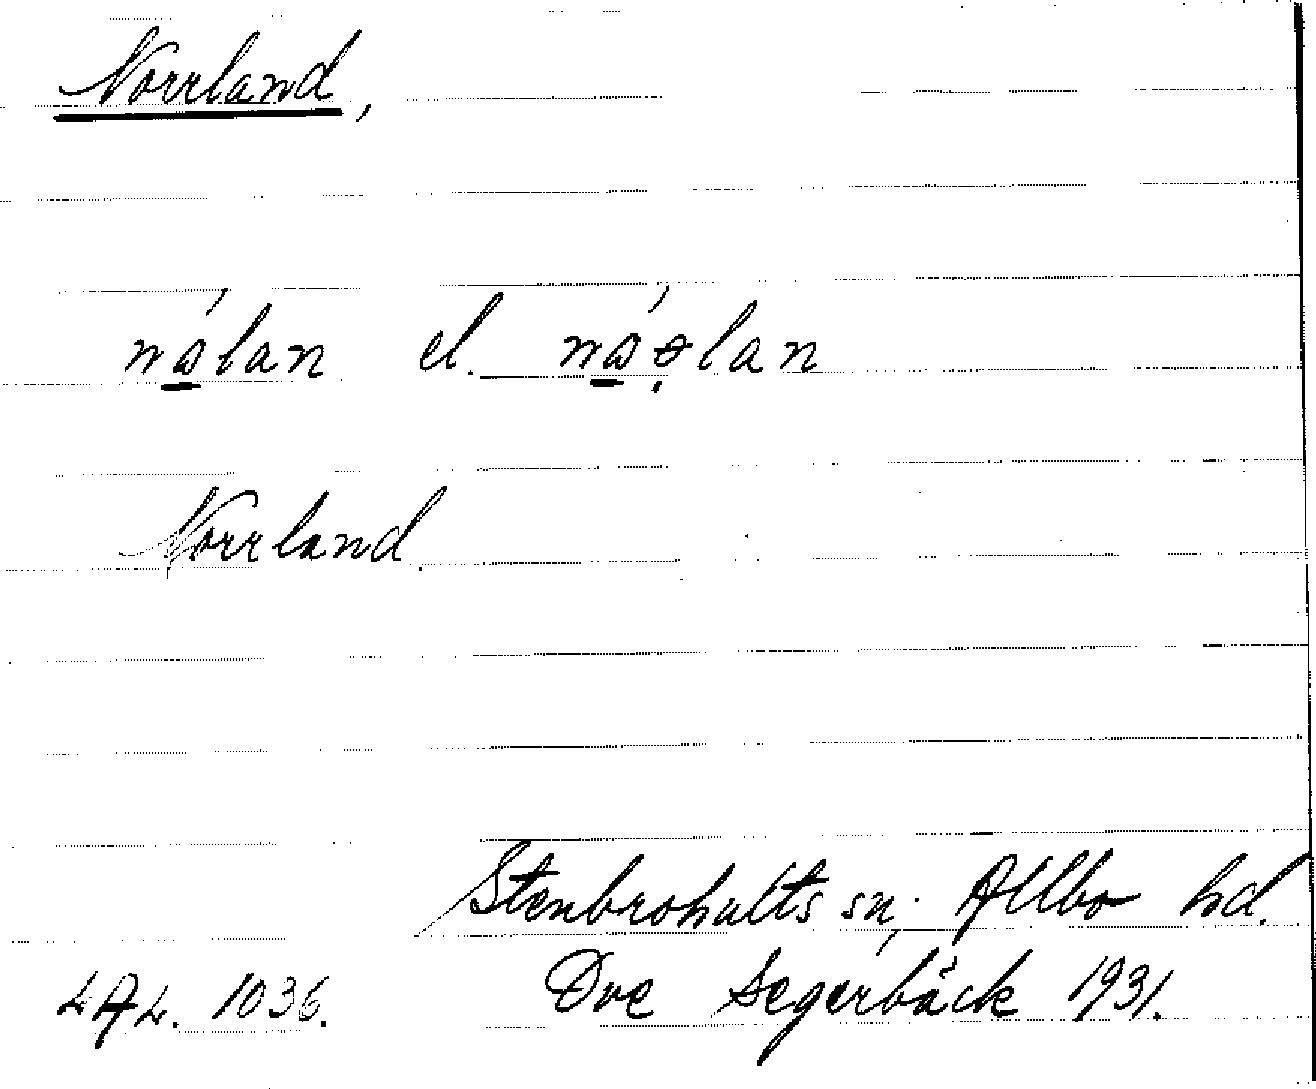 Norrland,
nålan el. nåəlan
Norrland.
Stenbrohults sn, Allbo hd.
LAL. 1036. Ove Segerbäck 1931.